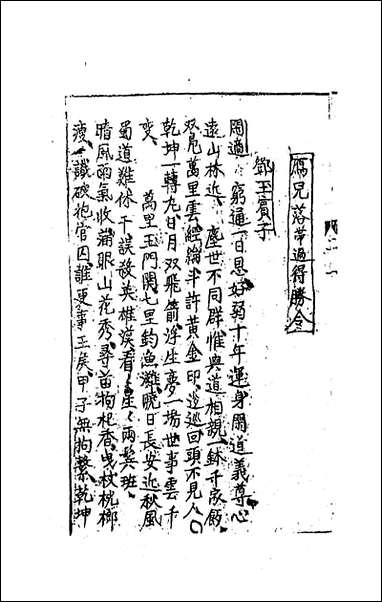 鴈兒落帶過得勝令
鄧玉賓子
閑適　窮通一日恩好弱十年運身閑道義尊心
遠山林近　塵世不同群惟與道相親一鉢千家飯
双凫萬里雲經綸斗許黃金印逡巡回頭不見人〇
乾坤一轉丸日月双飛箭浮生夢一場世事雲千
変　萬里玉門関七里釣魚灘曉日長安近秋風
蜀道難休干誤殺英雄漢看〻星〻兩鬂班
晴風雨氣收滿眼山花秀尋苗枸杞香曳杖桄榔
瘦　識破抱官囚誰更事王矦甲子無拘繫乾坤